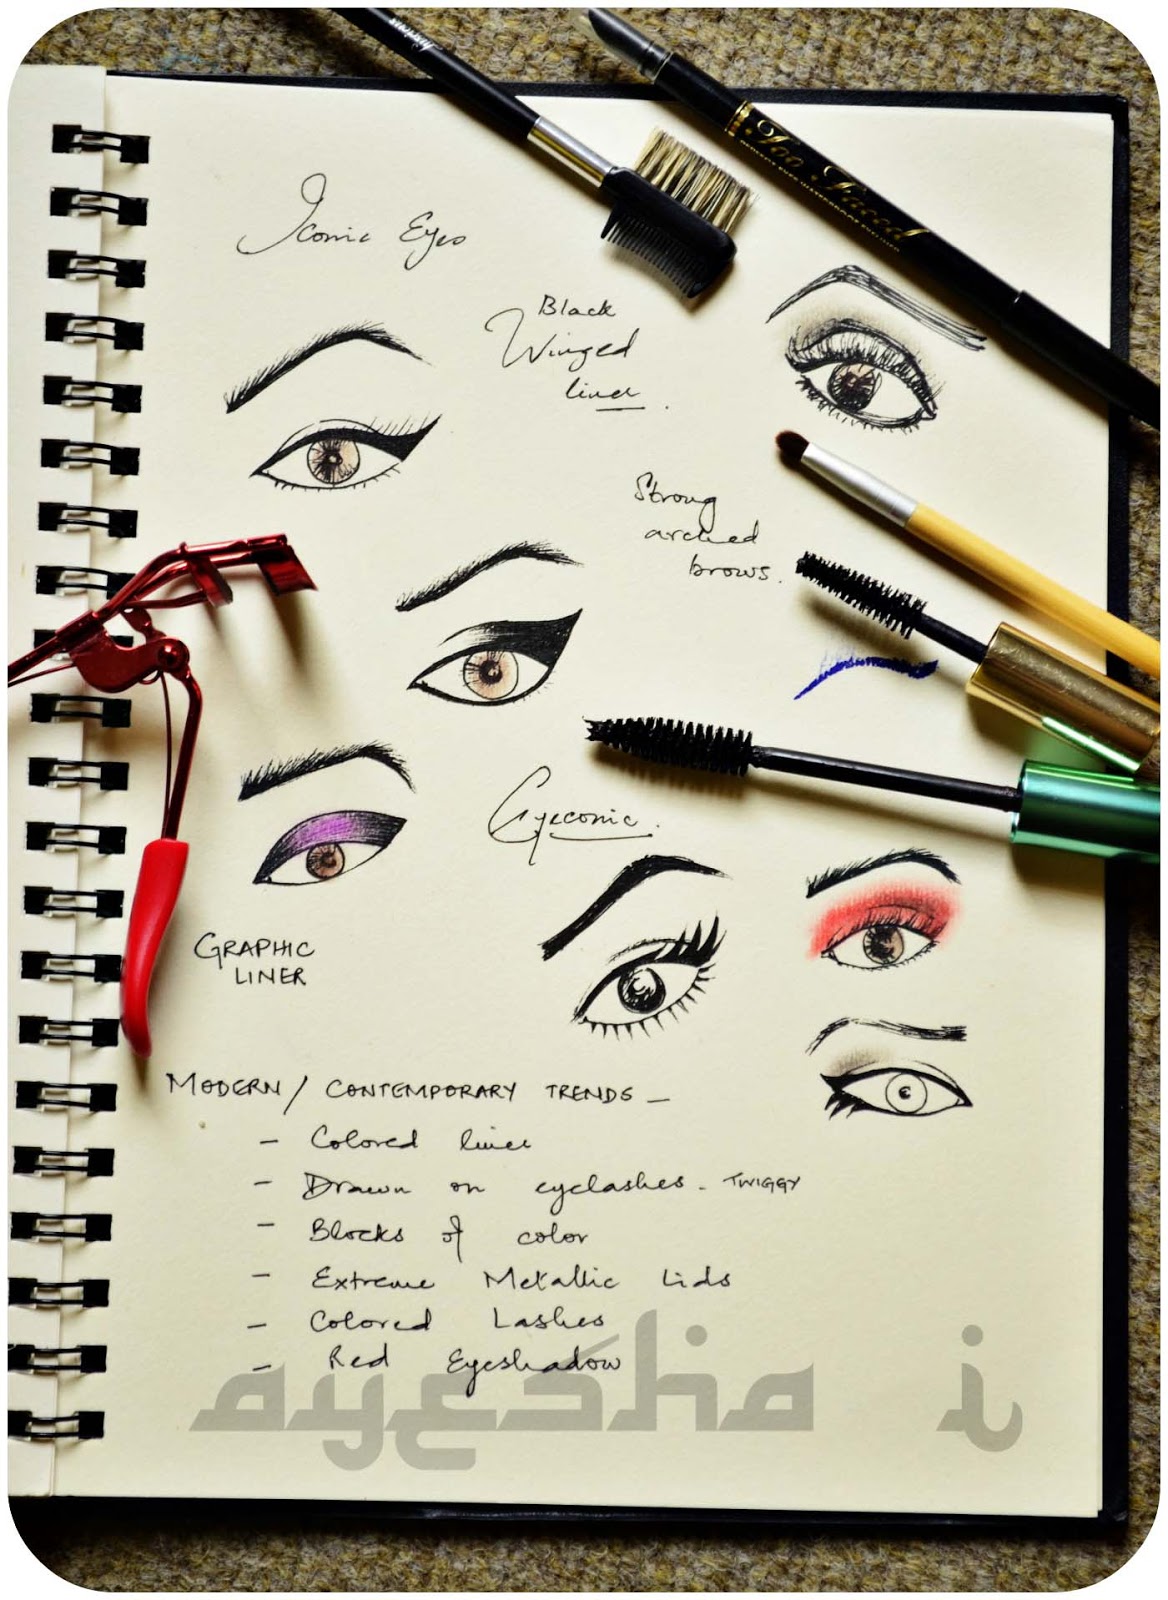 Too Faced
Iconic Eyes
Black
Winged
liner.
Strong
arched
brows.
Eyeconic.
GRAPHIC
LINER
MODERN/ CONTEMPORARY TRENDS -
- Colored liner
- Drawn on eyelashes - TWIGGY
- Blocks of color
- Extreme Metallic Lids
- Colored Lashes
- Red Eyeshadow
ayesha i